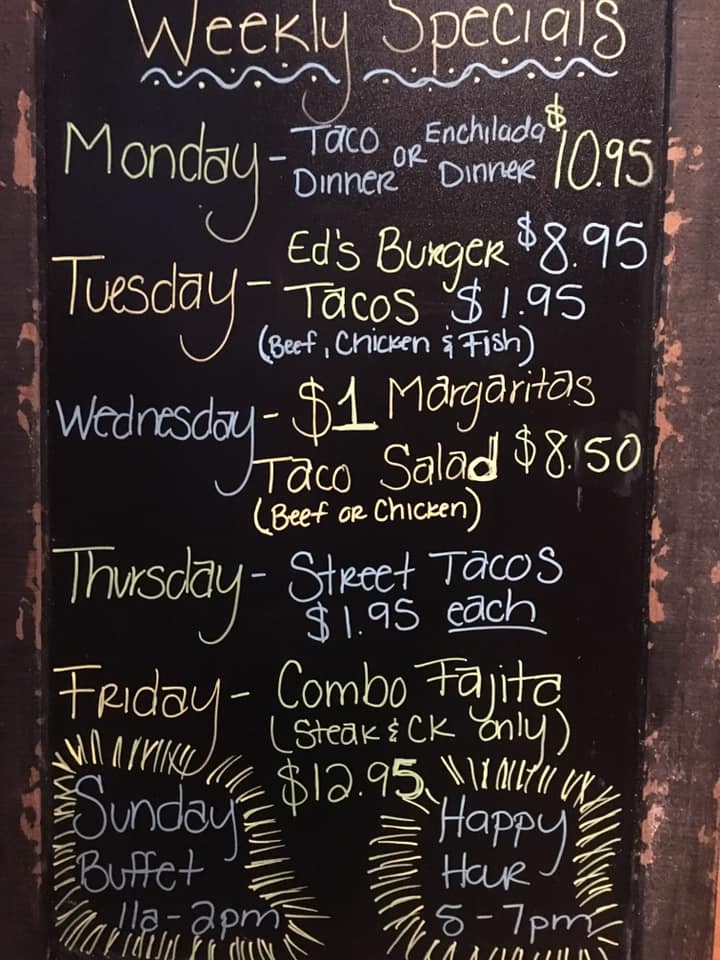 Weekly Specials
Monday - Taco Dinner OR Enchilada Dinner $10.95
Tuesday - Ed's Burger $8.95
Tacos $1.95
(Beef, Chicken & Fish)
Wednesday - $1 Margaritas
Taco Salad $8.50
(Beef or Chicken)
Thursday - Street Tacos
$1.95 each
Friday - Combo Fajita
(Steak & CK only)
$12.95
Sunday
Buffet
11a - 2pm
Happy
Hour
5 - 7pm